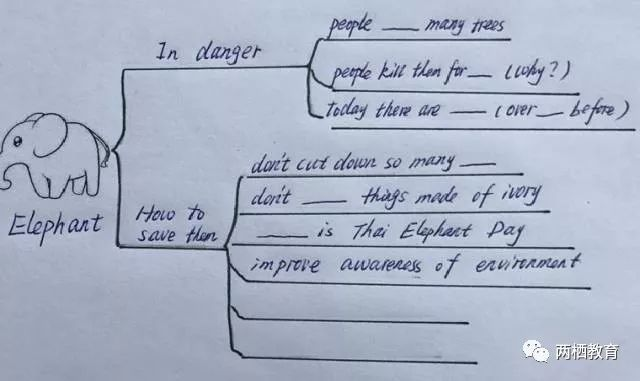 people ___ many trees
In danger
people kill them for ___ (why?)
today there are ___ (over ___ before)
don't cut down so many ___
don't ___ things made of ivory
Elephant
How to
save them
___ is Thai Elephant Day
improve awareness of environment
两栖教育